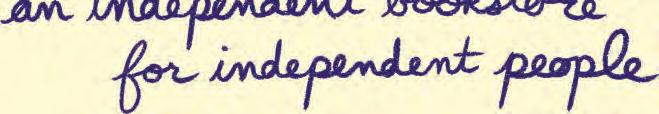 an independent bookstore
for independent people